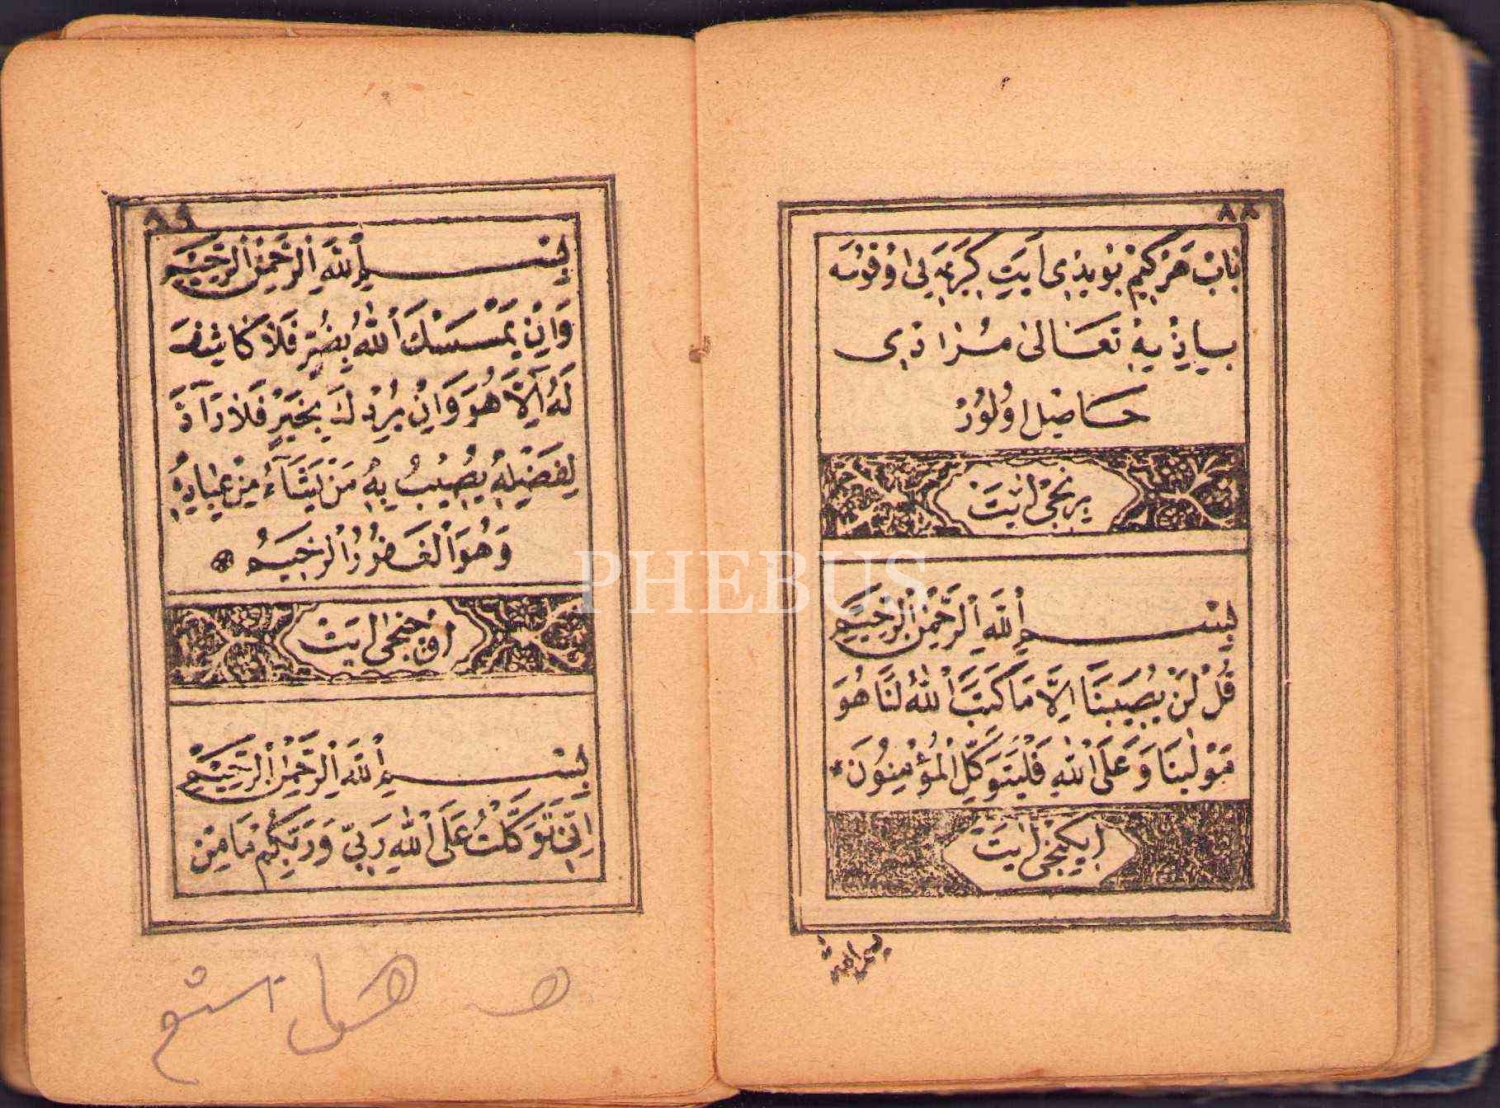 ٨٨
باب هركيم بو يدى ايت كريمه يى اوقوسه
باذن الله تعالى مرادى
حاصل اولور
برنجى ايت
بِسْمِ اللّٰهِ الرَّحْمٰنِ الرَّحِيمِ
قُلْ لَنْ يُصِيبَنَا اِلَّا مَا كَتَبَ اللّٰهُ لَنَا هُوَ
مَوْلٰينَا وَعَلَى اللّٰهِ فَلْيَتَوَكَّلِ الْمُؤْمِنُونَ
ايكنجى ايت
بسم الله
٨٩
بِسْمِ اللّٰهِ الرَّحْمٰنِ الرَّحِيمِ
وَاِنْ يَمْسَسْكَ اللّٰهُ بِضُرٍّ فَلَا كَاشِفَ
لَهُ اِلَّا هُوَ وَاِنْ يُرِدْكَ بِخَيْرٍ فَلَا رَآدَّ
لِفَضْلِهِ يُصِيبُ بِهِ مَنْ يَشَآءُ مِنْ عِبَادِهِ
وَهُوَ الْغَفُورُ الرَّحِيمُ
اوچنجى ايت
بِسْمِ اللّٰهِ الرَّحْمٰنِ الرَّحِيمِ
اِنِّى تَوَكَّلْتُ عَلَى اللّٰهِ رَبِّى وَرَبِّكُمْ مَا مِنْ
PHEBUS